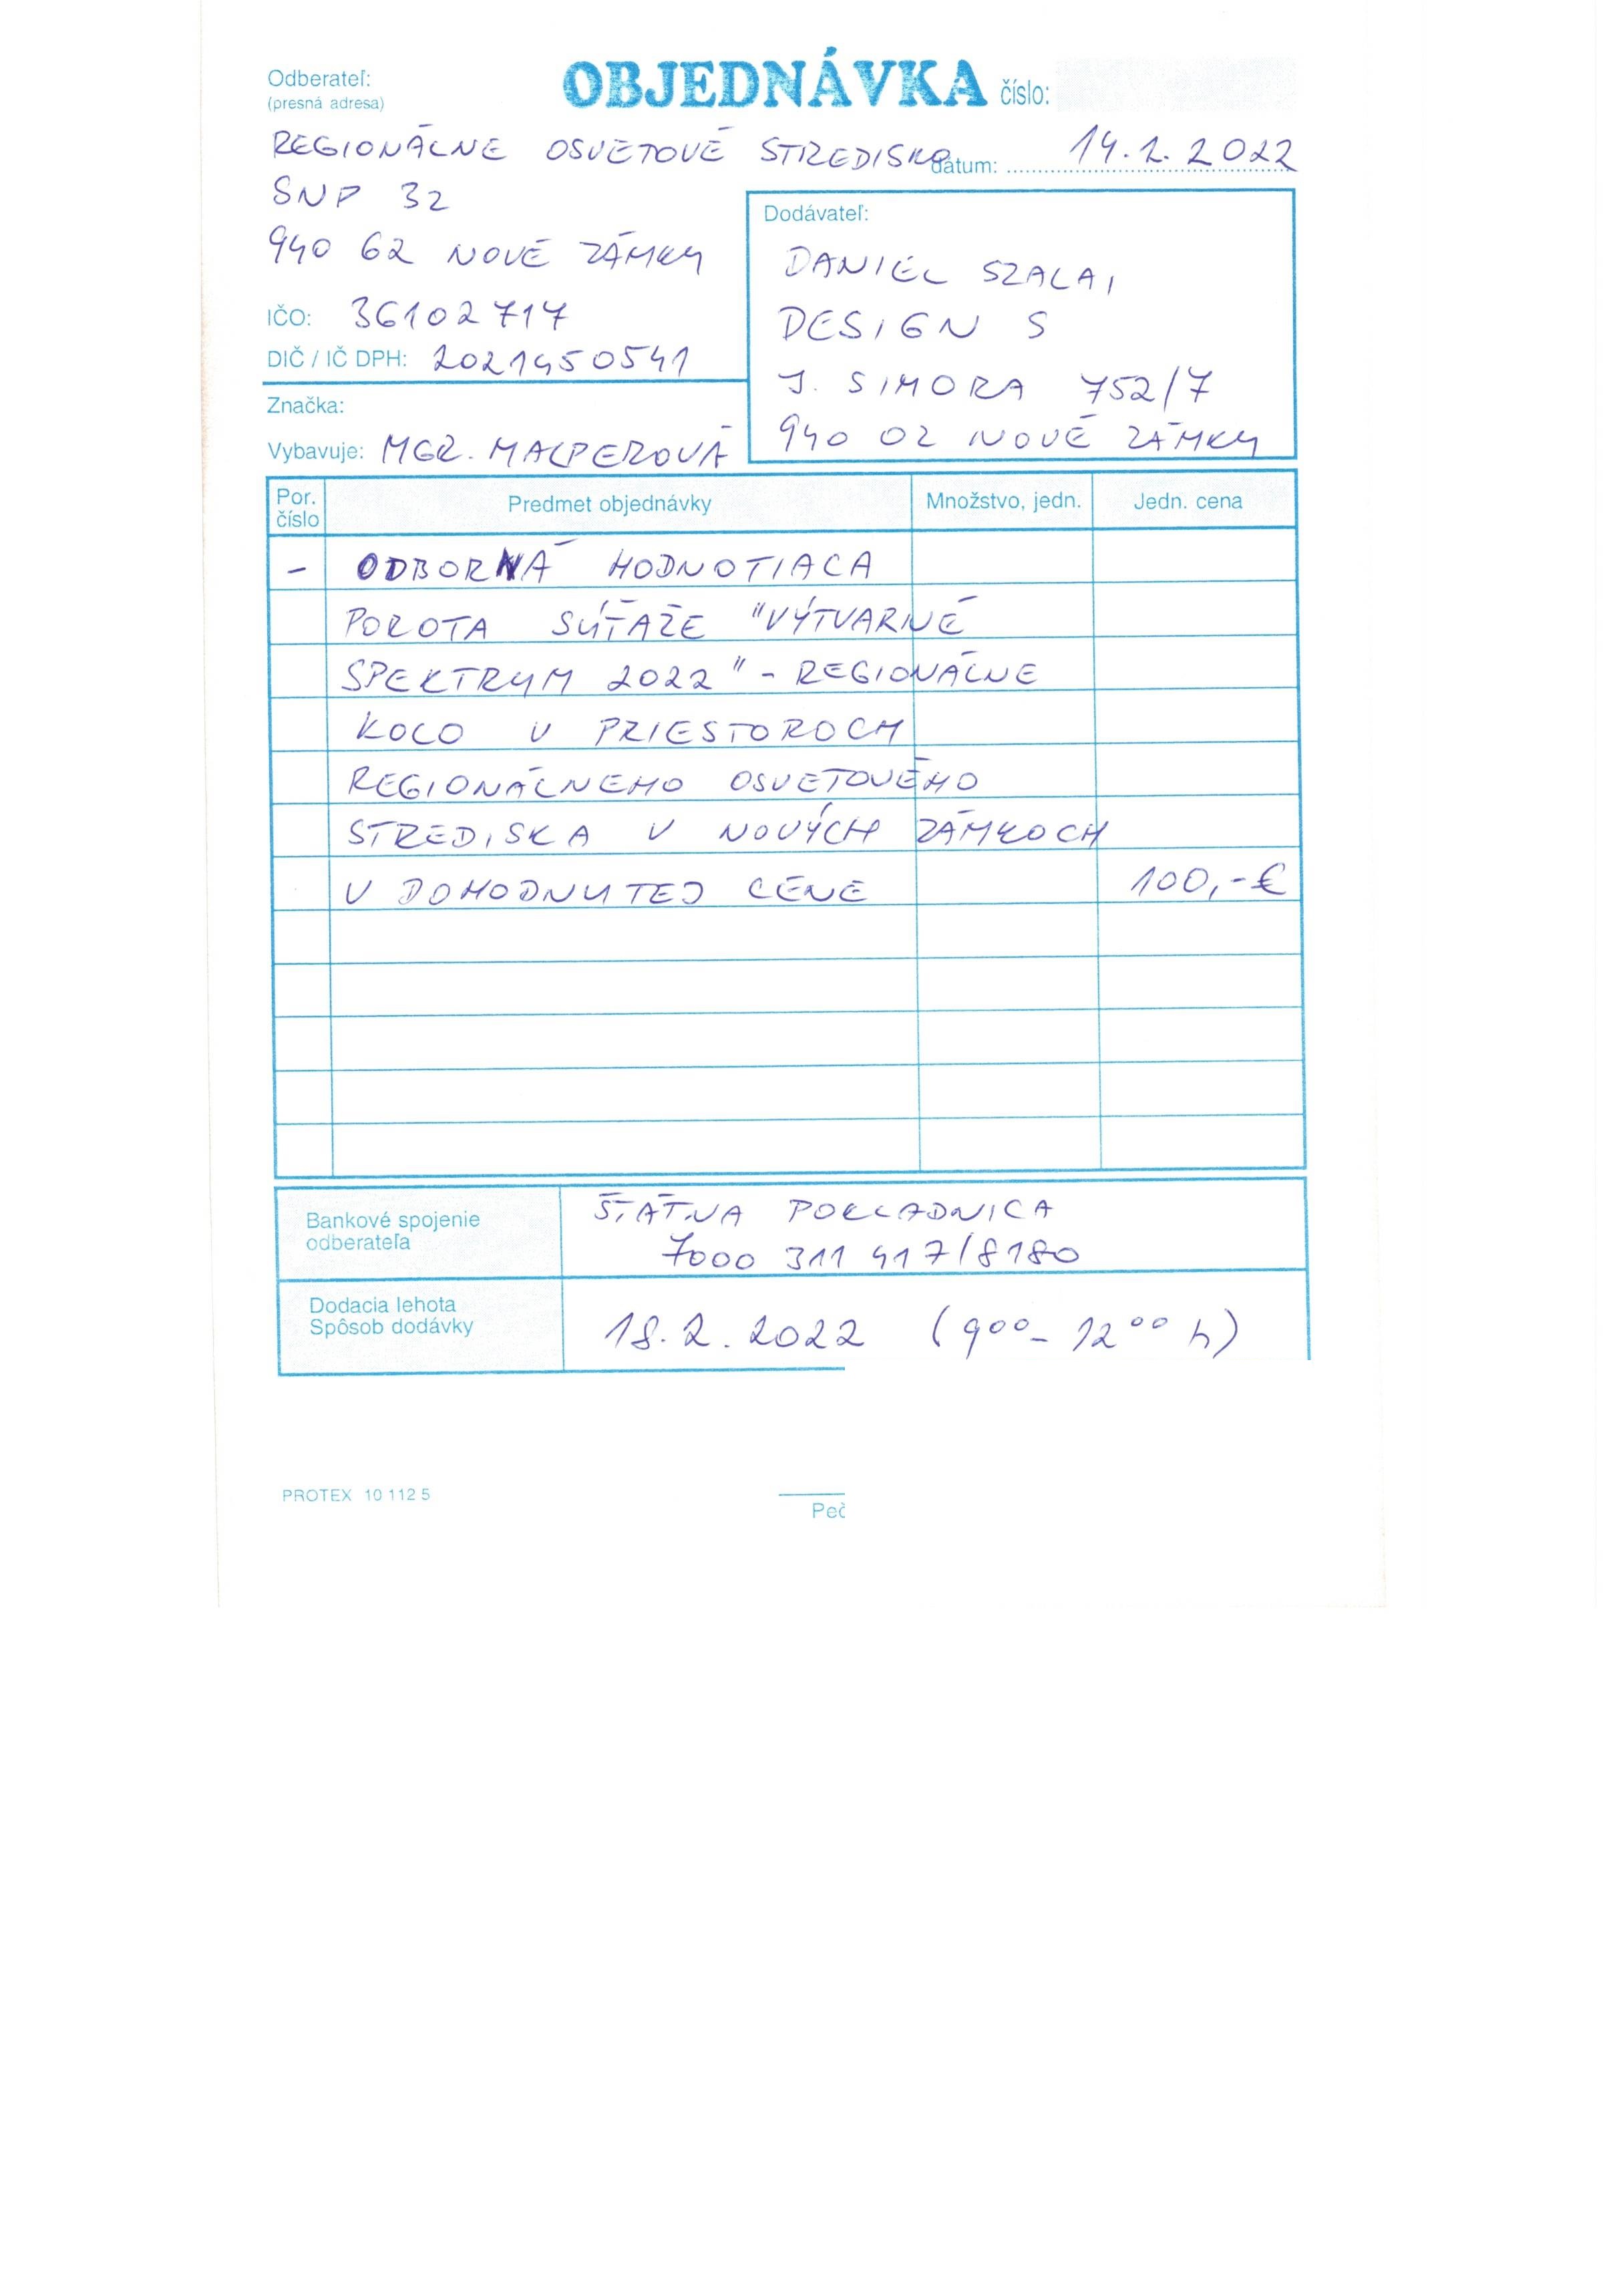 Odberateľ:
(presná adresa)
OBJEDNÁVKA číslo:
REGIONÁLNE OSVETOVÉ STREDISKO dátum: 14.2.2022
SNP 32
940 62 NOVÉ ZÁMKY
IČO: 36102717
DIČ / IČ DPH: 2021450541
Značka:
Vybavuje: MGR. MALPEROVÁ
Dodávateľ:
DANIEL SZALAI
DESIGN S
J. SIMORA 752/7
940 02 NOVÉ ZÁMKY
Por. číslo Predmet objednávky Množstvo, jedn. Jedn. cena
- ODBORNÁ HODNOTIACA
POROTA SÚŤAŽE "VÝTVARNÉ
SPEKTRUM 2022" - REGIONÁLNE
KOLO V PRIESTOROCH
REGIONÁLNEHO OSVETOVÉHO
STREDISKA V NOVÝCH ZÁMKOCH
V DOHODNUTEJ CENE 100,-€
Bankové spojenie
odberateľa
ŠTÁTNA POKLADNICA
7000 311 417/8180
Dodacia lehota
Spôsob dodávky
18.2.2022 (9⁰⁰- 12⁰⁰ h)
PROTEX 10 112 5
Peč